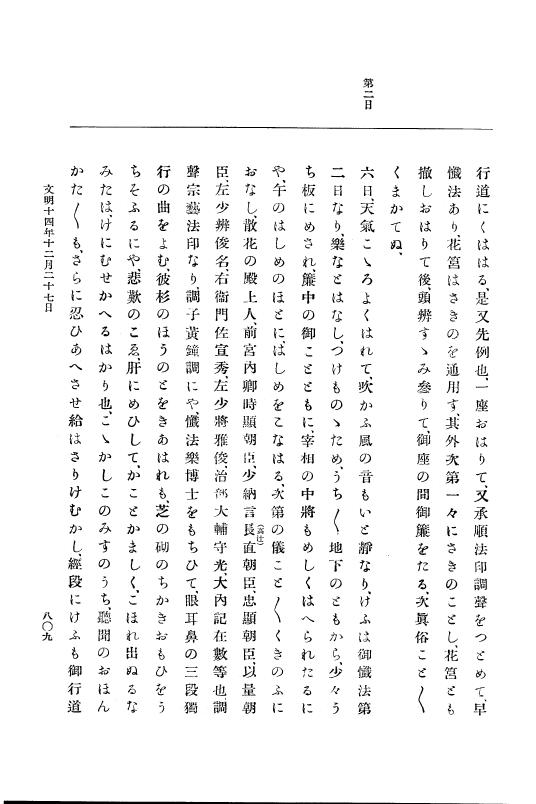 第二日
行道にくははる、是又先例也、一座おはりて、又承順法印調聲をつとめて、早
懺法あり、花筥はさきのを通用す、其外次第一々にさきのことし、花筥とも
撤しおはりて後、頭辨すゝみ參りて、御座の間御簾をたる、次眞俗こと〱
くまかてぬ、
六日、天氣こゝろよくはれて、吹かふ風の音もいと靜なり、けふは御懺法第
二日なり、樂なとはなし、つけものゝため、うち〱地下のともから、少々う
ち板にめされ、簾中の御ことともに、宰相の中將もめしくはへられたるに
や、午のはしめのほとに、はしめをこなはる、次第の儀こと〱くきのふに
おなし、散花の殿上人、前宮内卿時顯朝臣、少納言長直朝臣、忠顯朝臣、以量朝
(高辻)
臣、左少辨俊名、右衞門佐宣秀、左少將雅俊、治部大輔守光、大内記在數等也、調
聲宗藝法印なり、調子黃鐘調にや、懺法樂博士をもちひて、眼耳鼻の三段獨
行の曲をよむ、彼杉のほうのとをきあはれも、芝の砌のちかきおもひをう
ちそふるにや、悲歎のこゑ、肝にめひして、かことかましく、こほれ出ぬるな
みたは、けにむせかへるはかり也、こゝかしこのみすのうち、聽聞のおほん
かた〱も、さらに忍ひあへさせ給はさりけむかし、經段にけふも御行道
文明十四年十二月二十七日
八〇九